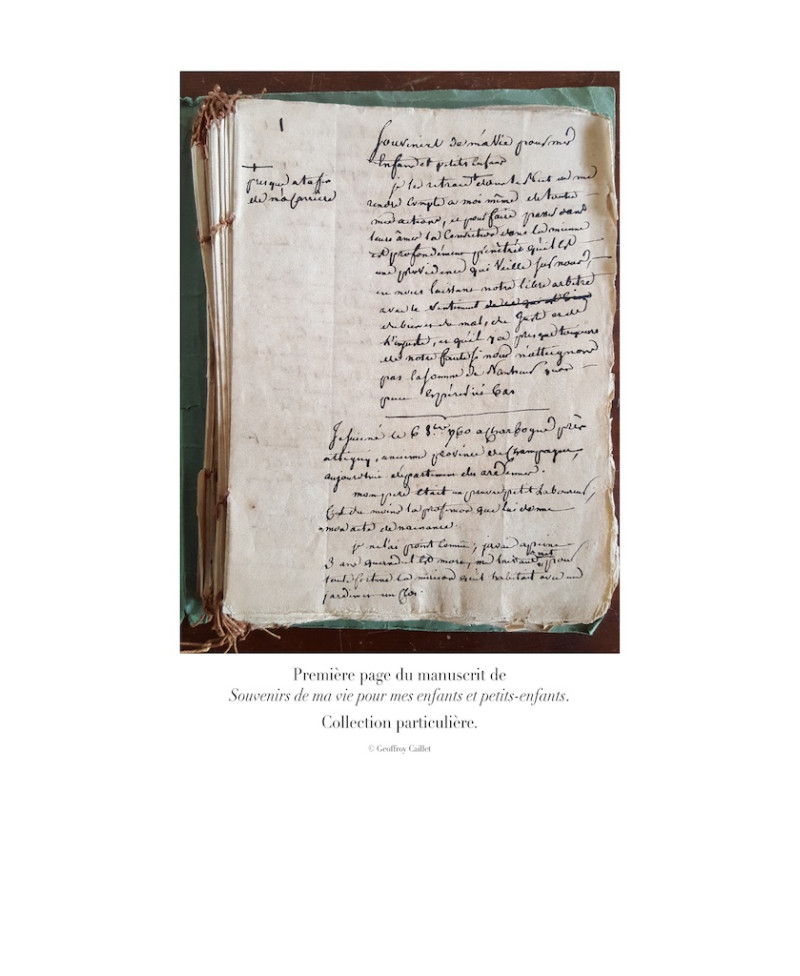 1
Souvenirs de ma Vie pour mes
Enfans et petits Enfans
+
presque a la fin
de ma Carriere
je les retrace dans le but de me
rendre Compte a moi même de toutes
mes actions, et pour faire passer dans
leurs âmes la Conviction dont la mienne
est profondément pénétrée qu'il est
une providence qui Veille sur nous,
en nous laissant notre libre arbitre
avec le Sentiment
du bien et du mal, du Juste et de
l'injuste, et qu'il y a presque toujours
de notre faute si nous n'atteignons
pas la somme de bonheur
espérer ici bas
Je suis né le 6 8bre 1760 a Charbogne près
attigny, ancienne province de Champagne,
aujourd'hui département des ardennes.
mon pere était un pauvre petit Laboureur,
C'est du moins la profession que lui donne
mon acte de naissance.
je ne l'ai point Connu, j'avais a peine
3 ans quand il est mort, me laissant pour
toute fortune la maison qu'il habitait avec un
jardin et un Clos.
Première page du manuscrit de
Souvenirs de ma vie pour mes enfants et petits-enfants.
Collection particulière.
© Geoffroy Caillet